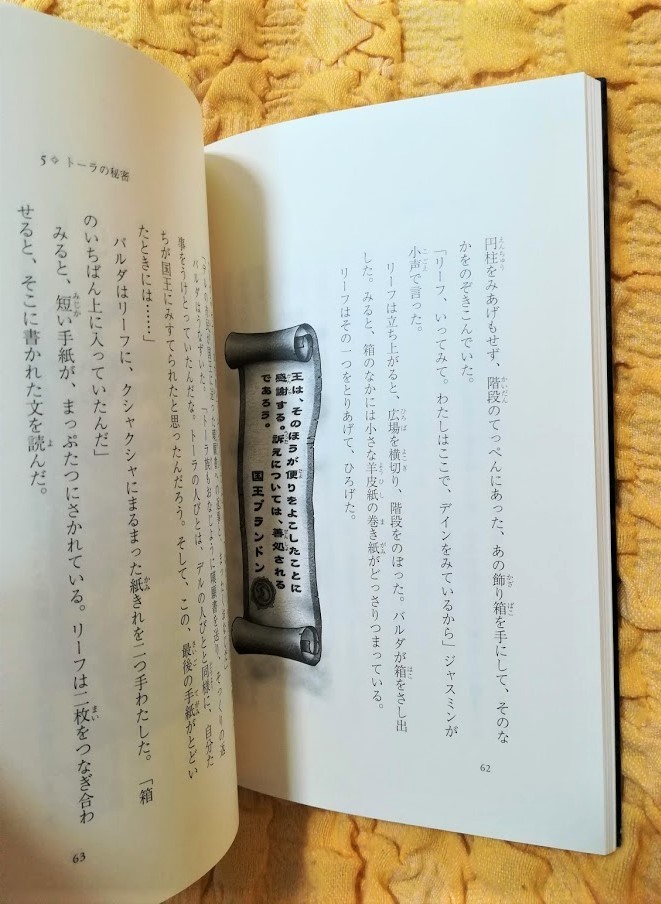 円柱をみあげもせず、階段のてっぺんにあった、あの飾り箱を手にして、そのな
かをのぞきこんでいた。
「リーフ、いってみて。わたしはここで、デインをみているから」ジャスミンが
小声で言った。
リーフは立ち上がると、広場を横切り、階段をのぼった。バルダが箱をさし出
した。みると、箱のなかには小さな羊皮紙の巻き紙がどっさりつまっている。
リーフはその一つをとりあげて、ひろげた。
王は、そのほうが便りをよこしたことに
感謝する。訴えについては、善処される
であろう。
国王ブランドン
62
5◇トーラの秘密
バルダはうなずいた。「トーラ族もおなじように嘆願書を送り、そっくりの返
事をうけとっていたんだな。トーラの人びとは、デルの人びとと同様に、自分た
ちが国王にみすてられたと思ったんだろう。そして、この、最後の手紙がとどい
たときには……」
バルダはリーフに、クシャクシャにまるまった紙きれを二つ手わたした。「箱
のいちばん上に入っていたんだ」
みると、短い手紙が、まっぷたつにさかれている。リーフは二枚をつなぎ合わ
せると、そこに書かれた文を読んだ。
63